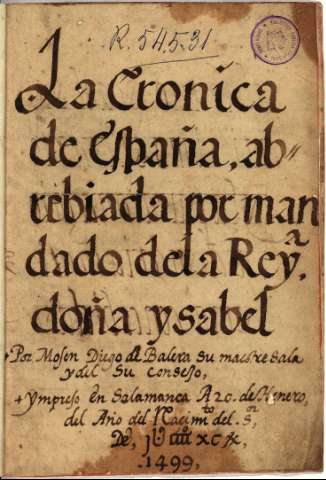 R. 54531
La Cronica
de España, ab=
rebiada por man
dado de la Reyª.
doña ysabel
+ Por Mosen Diego de Balera su maestresala
y del su consejo,
+ ympreso en Salamanca A 20. de Henero,
del Año del Nacimto del. Sor.
De,
.1499.